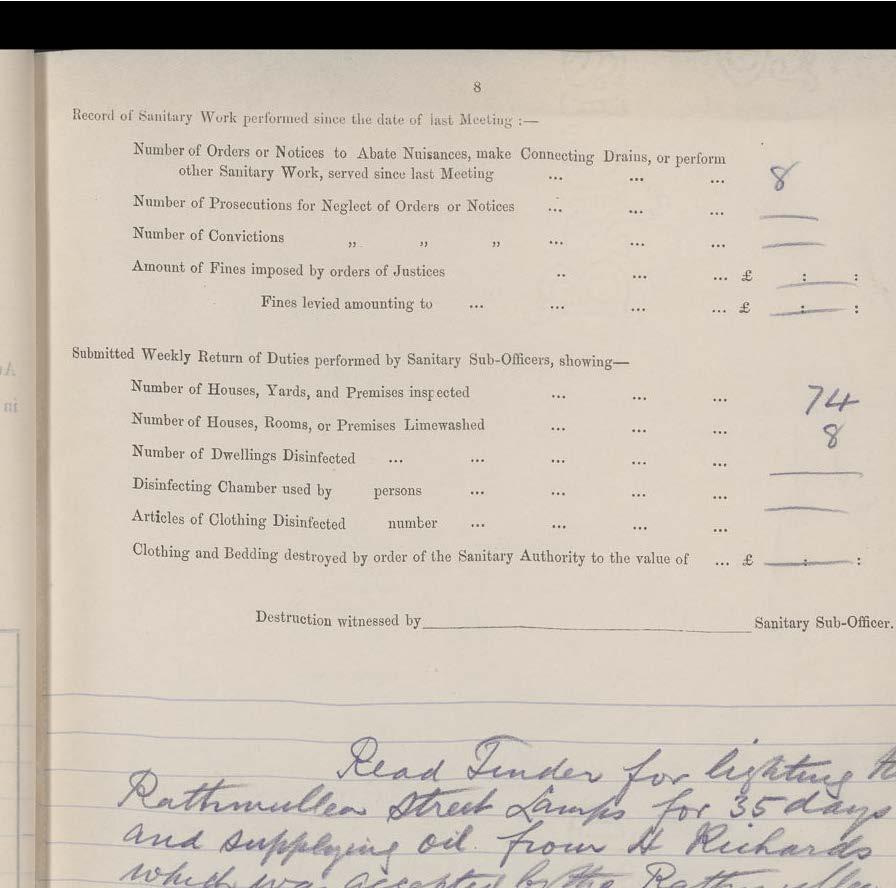 8
Record of Sanitary Work performed since the date of last Meeting :—
Number of Orders or Notices to Abate Nuisances, make Connecting Drains, or perform
other Sanitary Work, served since last Meeting ... ... ... 8
Number of Prosecutions for Neglect of Orders or Notices ... ... ... —
Number of Convictions „ „ „ ... ... ... —
Amount of Fines imposed by orders of Justices .. ... ... £ — : :
Fines levied amounting to ... ... ... ... £ — : :
Submitted Weekly Return of Duties performed by Sanitary Sub-Officers, showing—
Number of Houses, Yards, and Premises inspected ... ... ... 74
Number of Houses, Rooms, or Premises Limewashed ... ... ... 8
Number of Dwellings Disinfected ... ... ... ... ... —
Disinfecting Chamber used by persons ... ... ... ... —
Articles of Clothing Disinfected number ... ... ... ...
Clothing and Bedding destroyed by order of the Sanitary Authority to the value of ... £ — : :
Destruction witnessed by Sanitary Sub-Officer.
Read Tender for lighting
Rathmullen Street Lamps for 35 days
and supplying oil from H Richards
which was accepted by the